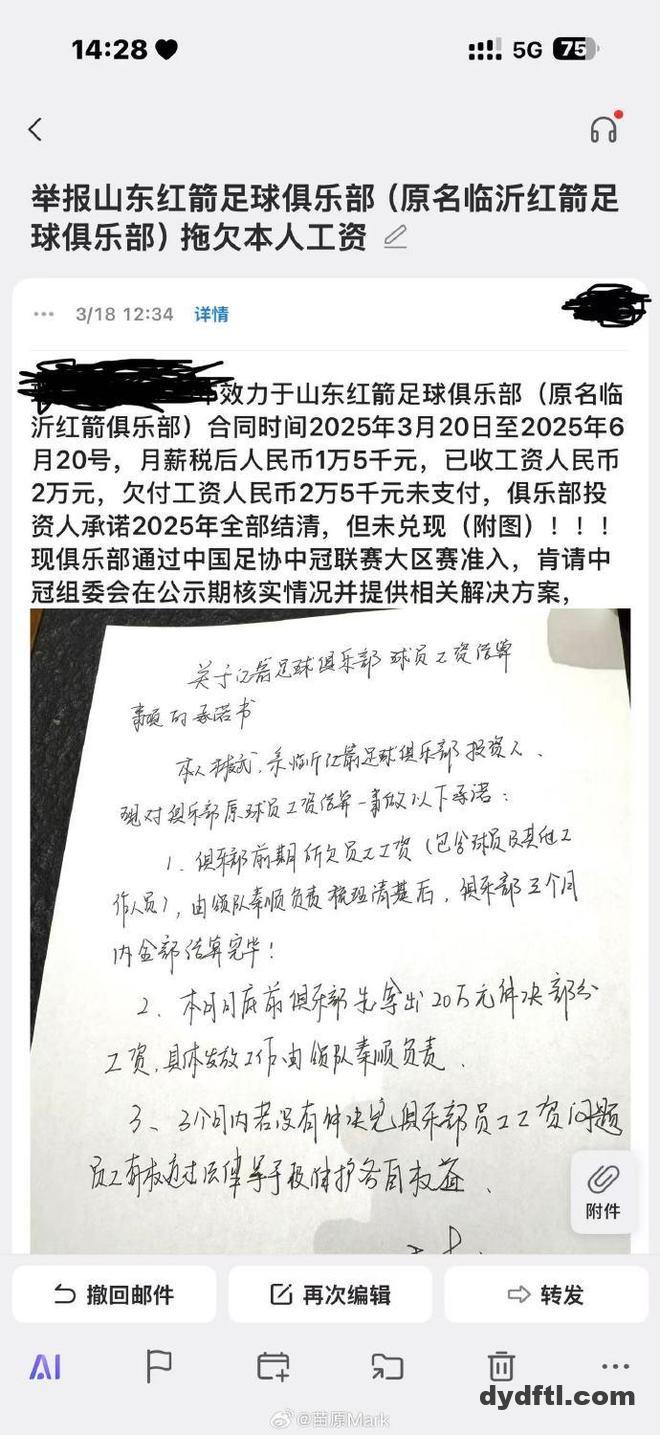 14:28
5G
75
举报山东红箭足球俱乐部（原名临沂红箭足
球俱乐部）拖欠本人工资
3/18 12:34 详情
效力于山东红箭足球俱乐部（原名临
沂红箭俱乐部）合同时间2025年3月20日至2025年6
月20号，月薪税后人民币1万5千元，已收工资人民币
2万元，欠付工资人民币2万5千元未支付，俱乐部投
资人承诺2025年全部结清，但未兑现（附图）！！！
现俱乐部通过中国足协中冠联赛大区赛准入，肯请中
冠组委会在公示期核实情况并提供相关解决方案，
关于红箭足球俱乐部球员工资结算
事项的承诺书
本人 系临沂红箭足球俱乐部投资人、
现对俱乐部原球员工资结算一事做以下承诺：
1、俱乐部前期所欠员工工资（包含球员及其他工
作人员），由领队秦顺负责梳理清楚后，俱乐部三个月
内全部结算完毕！
2、本月月底前俱乐部先拿出20万元解决部分
工资，具体发放工作由领队秦顺负责．
3、3个月内若没有解决完俱乐部员工工资问题
员工有权通过法律等手段维护各自权益、
附件
撤回邮件
再次编辑
转发
AI
dydftl.com
@苗原Mark